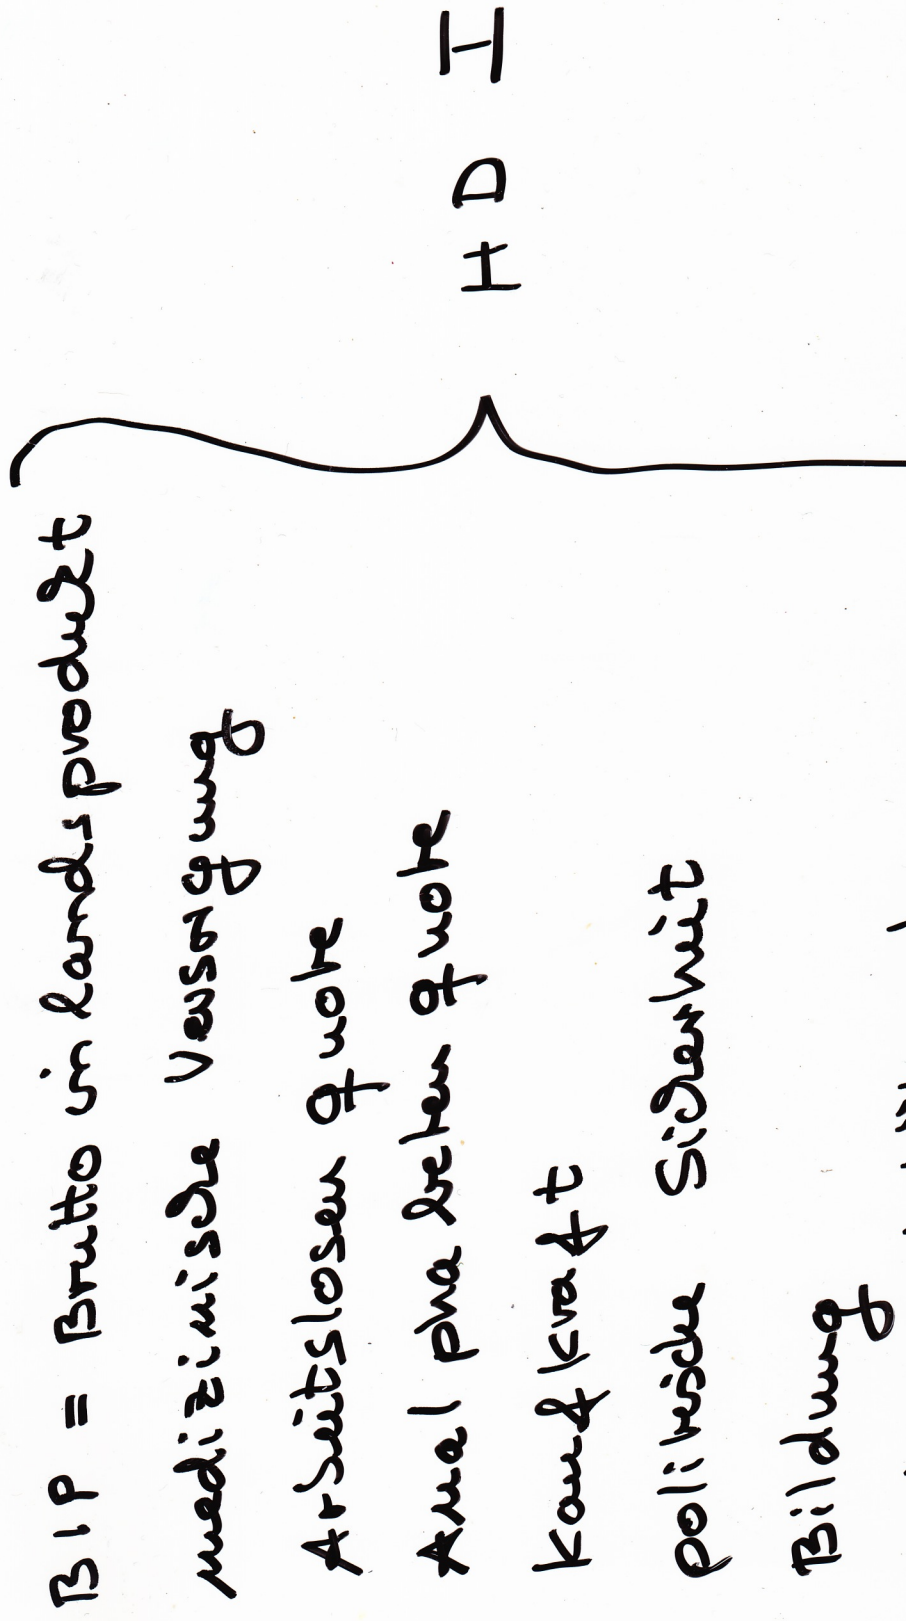 BIP = Bruttoinlandsprodukt
medizinische Versorgung
Arbeitslosenquote
Analphabetenquote
Kaufkraft
politische Sicherheit
Bildung
HDI